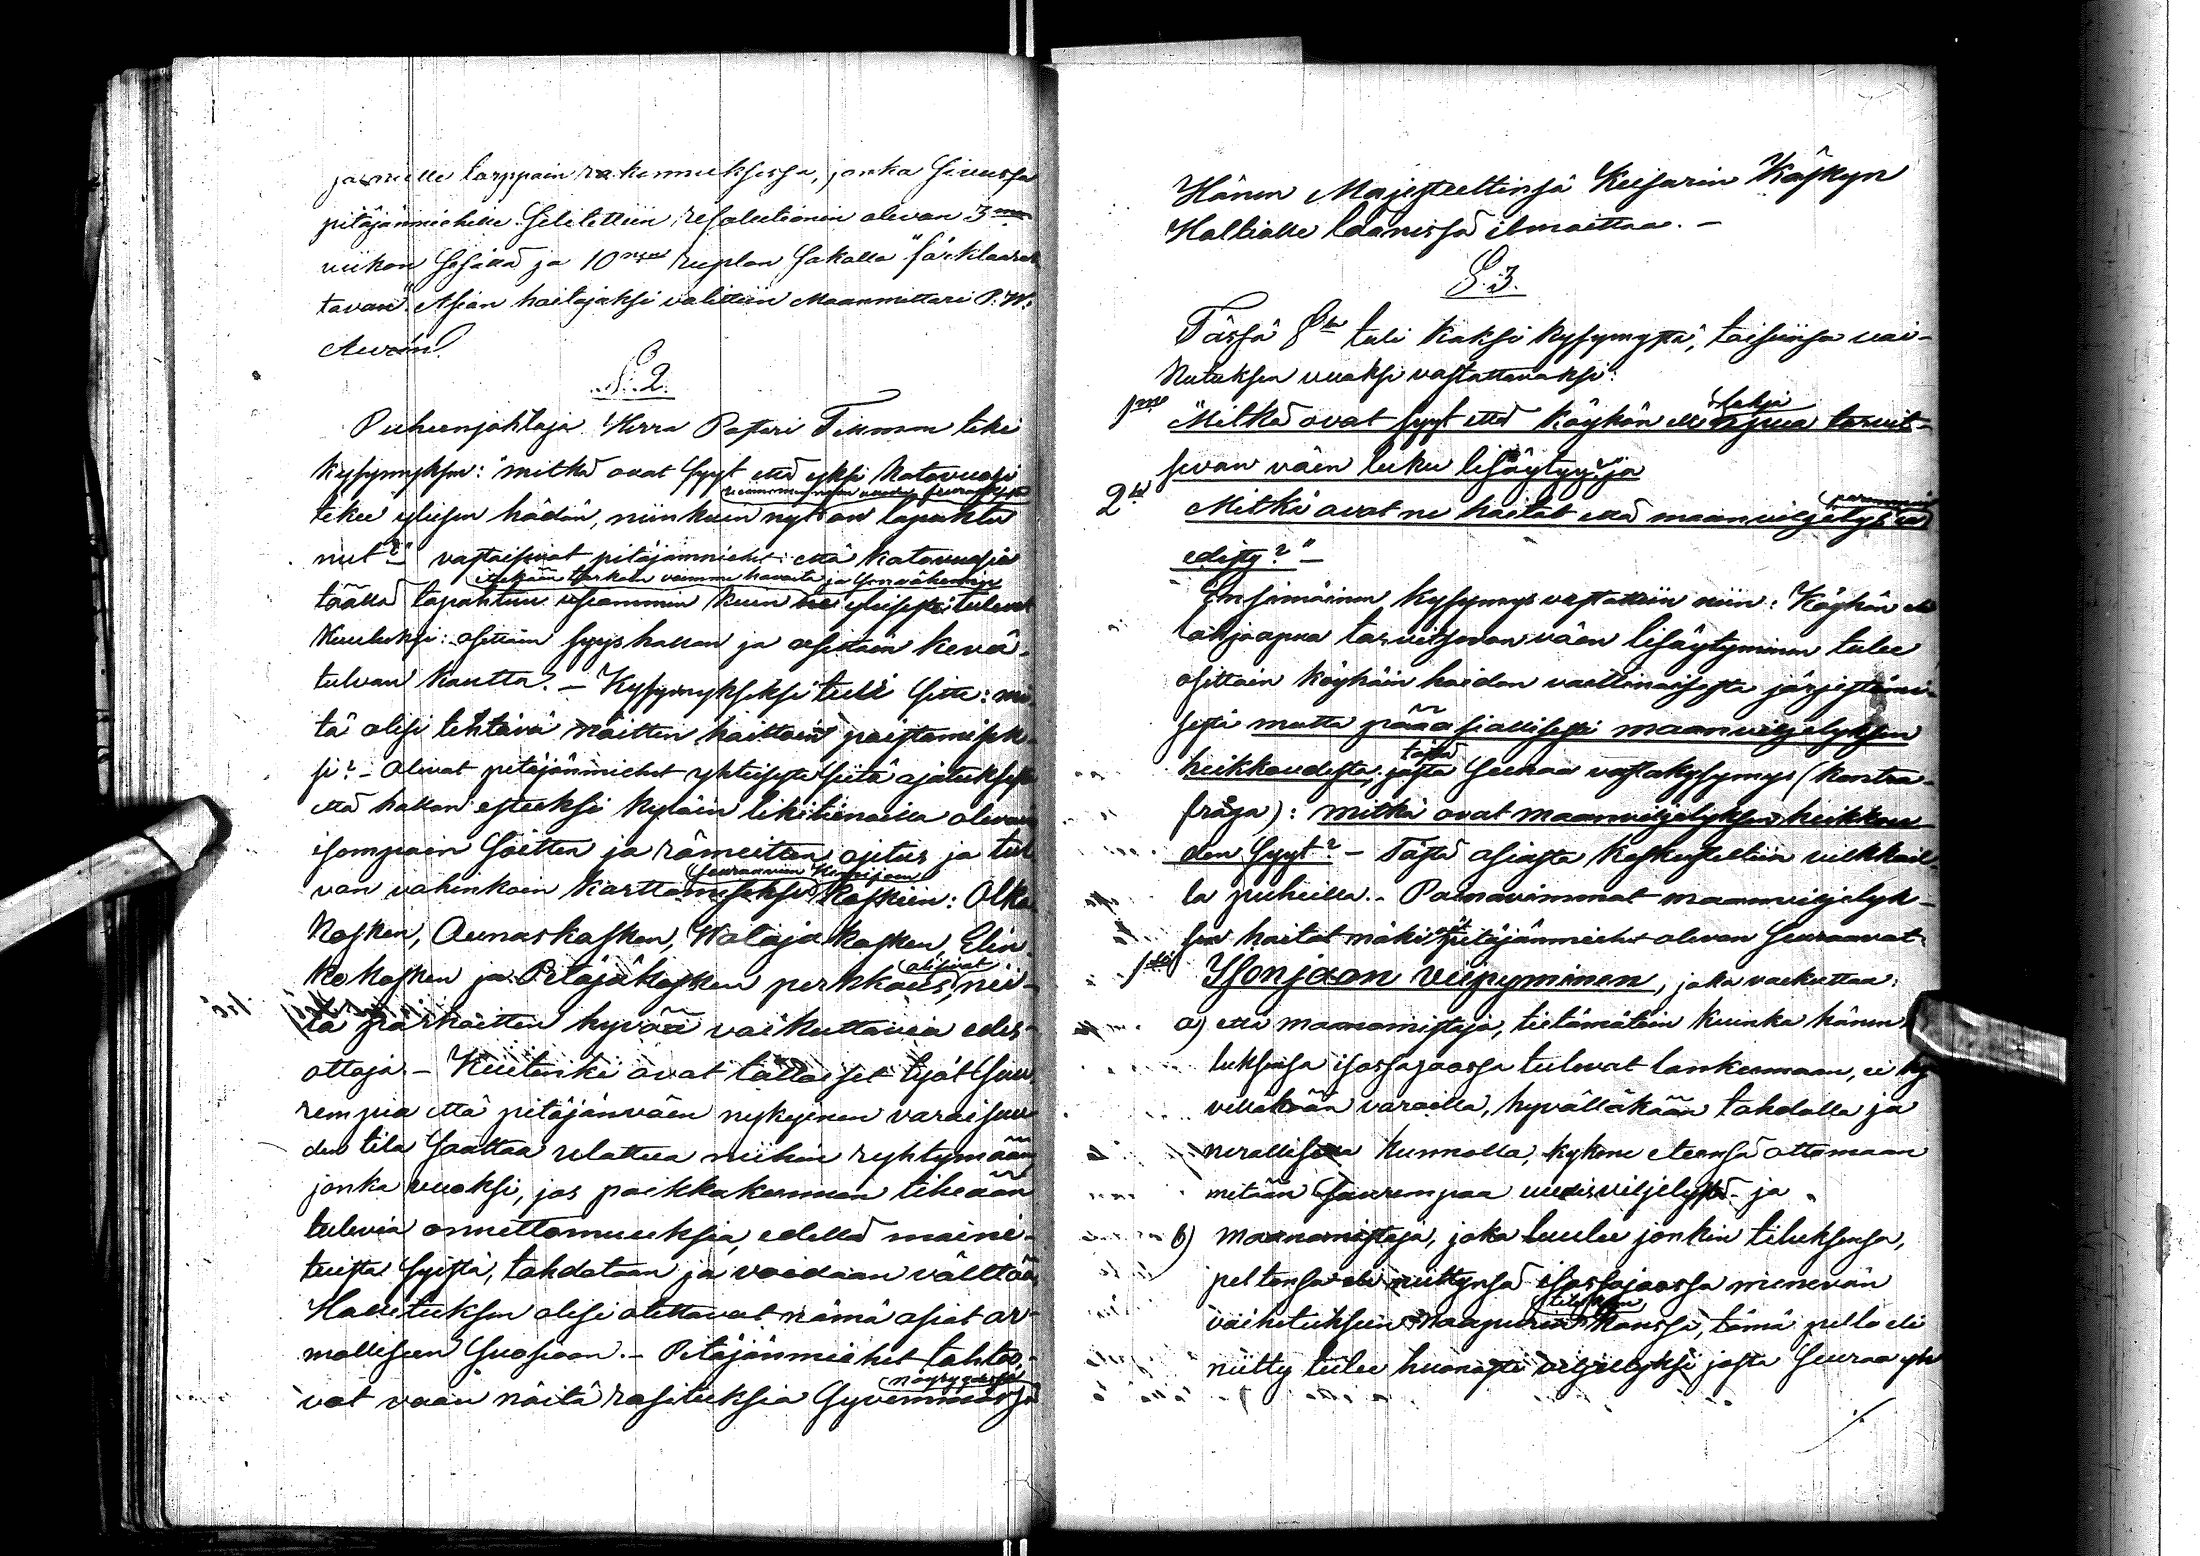 ja muille torppain rakennuksessa, jonka sivussa
pitäjänmiehille selitettiin resolutionin olevan 3
viikon sisällä ja 10 ruplan sakolla "förklarat
tavan". Asian hoitajaksi valittiin Maanmittari P. W.
S. 2.
Puheenjohtaja Herra Pastori Timmon teki
kysymyksen: "mitkä ovat syyt että yksi katovuosi
tekee yleisen hädän, niinkuin nyt on tapahtu
nut?" vastaisivat pitäjänmiehet: että katovuosia
täällä tapahtuu useammin kuin ne yleisesti tulevat
kuuluksi: osittain syyshallan ja osittain kevä-
tulvan kautta. – Kysymykseksi tuli sitte: mi
tä olisi tehtävä näitten haittain poistamisek-
si? – Olivat pitäjänmiehet yhteisesti siitä ajatuksesta
että hallan esteeksi kyläin likitienoilla olevain
isompain soitten ja rämeitten ojitus ja tul
van vahinkoin karttamiseksi seuraavien Kemijoen koskien: Olka
kosken, Aunaskosken, Walajakosken, Elin
kokosken ja Petäjäkosken perkkaus, olisivat nii-
tä parhaitten hyvää vaikuttavia edes-
ottoja – Kuitenki ovat tällaiset työt suu
rempia että pitäjänväen nykyinen varaisuu
den tila saattaa ulottua niihin ryhtymään
jonka vuoksi, jos paikkakunnan tiheään
tulevia onnettomuuksia, edellä maini-
tuista syistä, tahdotaan ja voidaan välttää
Hallituksen olisi otettavat nämä asiat ar-
molliseen suosioon. – Pitäjänmiehet tahtoi-
vat vaan näitä rasituksia syvimmässä nöyryydessä
Hänen Majesteettinsä Keisarin Käskyn
Haltialle läänissä ilmoittaa. –
S. 3.
Tässä §:ssa tuli kaksi kysymystä, toisiinsa vai-
kutuksen vuoksi vastattavaksi:
1mo "Mitkä ovat syyt että köyhän eli lahja apua tarvit-
sevan väen luku lisäytyy? ja
2do Mitkä ovat ne haitat että maanviljelys ei paremmin
edisty?" –
Ensimäinen kysymys vastattiin niin: Köyhän eli
lahjaapua tarvitsevan väen lisäytyminen tulee
osittain köyhäin hoidon vaillinaisesta järjestämi-
sestä mutta pääasiallisesti maanviljelyksen
heikkoudesta, josta tästä seuraa vastakysymys (kontra-
fråga): mitkä ovat maanviljelyksen heikkou-
den syyt? – Tästä asiasta keskusteltiin vilkkail-
la puheilla. – Painavimmat maanviljelyk-
sen haitat näkivät pitäjänmiehet olevan seuraavat:
1ksi Isonjaon viipyminen, joka vaikuttaa:
a) että maanomistaja, tietämätöin kuinka hänen
luksensa isossajaossa tulevat lankeemaan, ei hy
villäkään varoilla, hyvälläkään tahdolla ja
kunnolla, kykene eteensä ottamaan
mitään suurempaa uudisviljelystä ja
b) maanomistaja, joka luulee jonkin tiluksensa,
peltonsa eli niittynsä isossajaossa menevän
vaihetukseen naapurin tiluksen kanssa, tämä pelto eli
niitty tulee huonosti viljellyksi josta seuraa yh